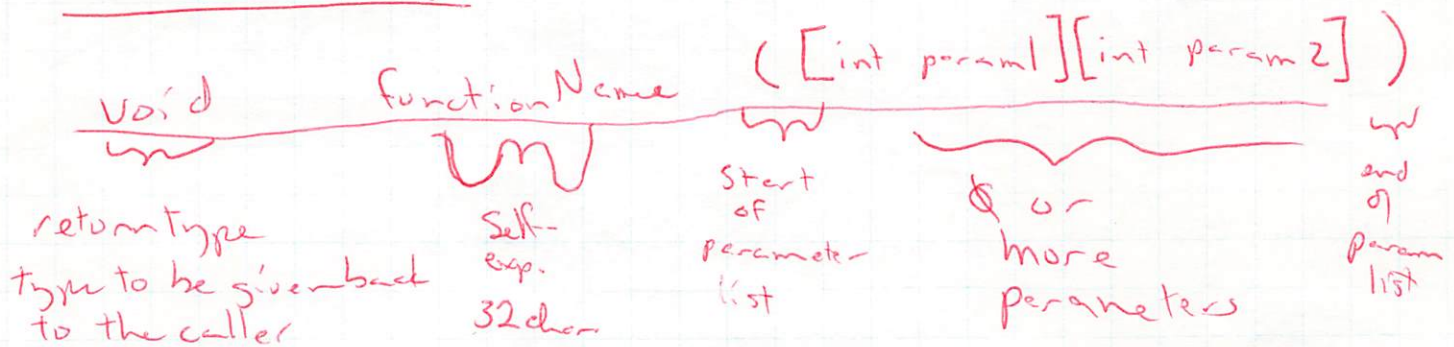 void functionName ([int param1][int param2])
return type
type to be given back
to the caller
Self-
exp.
32 char
Start
of
parameter
list
0 or
more
parameters
end
of
param
list